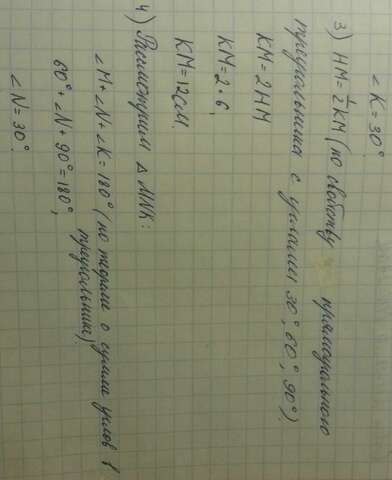 ∠K = 30°.
3) HM = ½ KM (по свойству прямоугольного
треугольника с углами 30°, 60°, 90°)
KM = 2HM
KM = 2 · 6
KM = 12 см.
4) Рассмотрим △ MNK:
∠M + ∠N + ∠K = 180° (по теореме о сумме углов в
треугольнике)
60° + ∠N + 90° = 180°,
∠N = 30°.